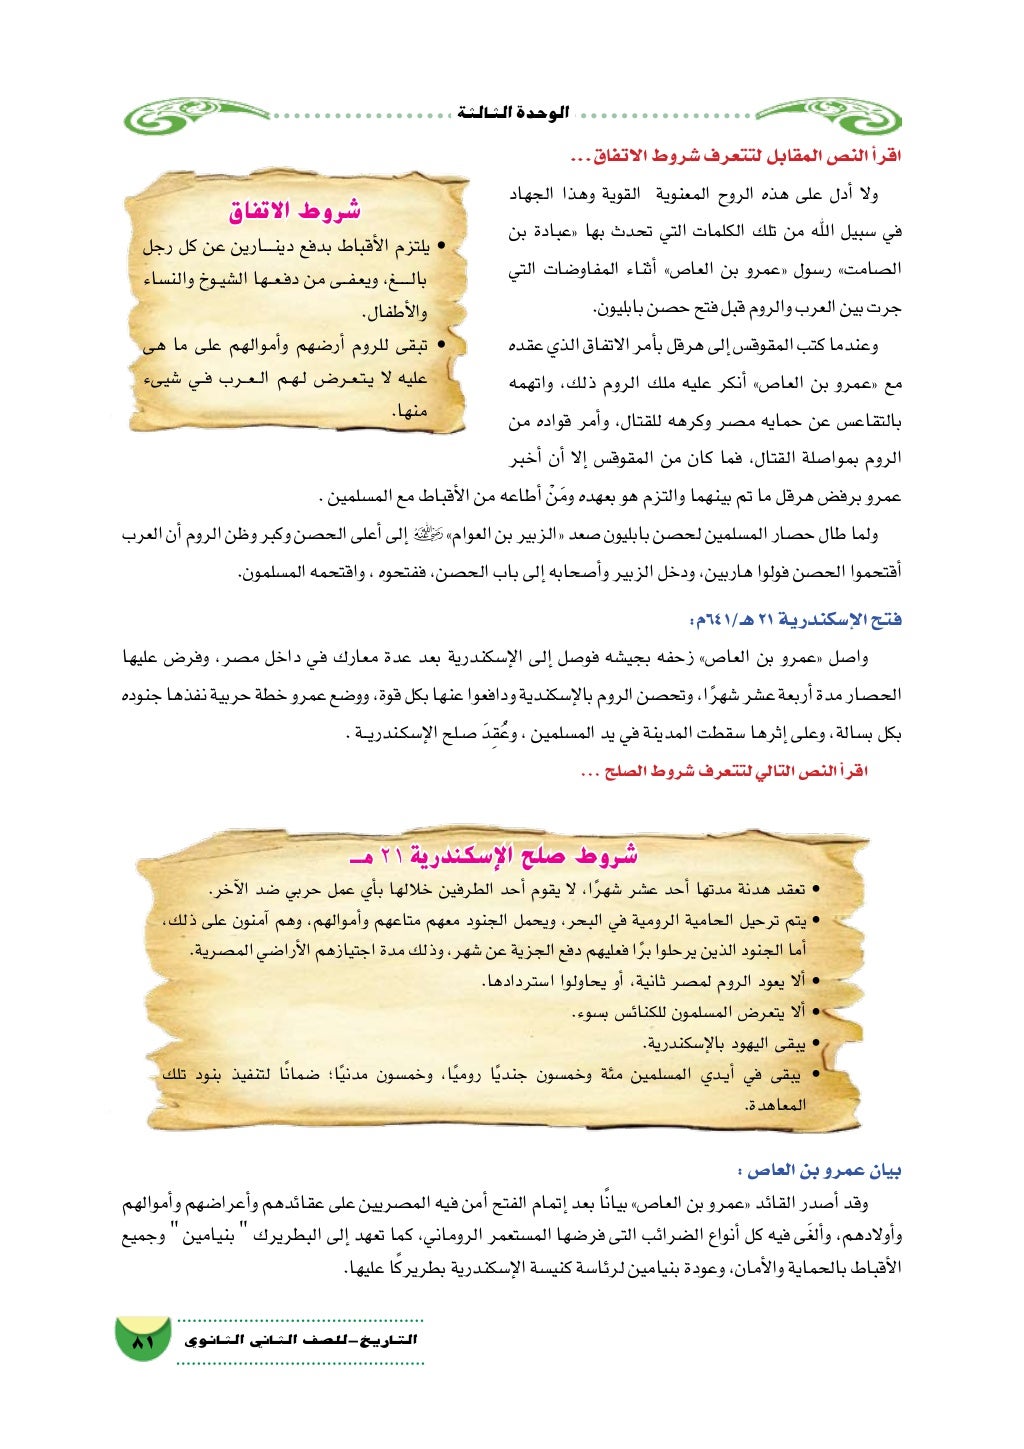 الوحدة الثالثة
اقرأ النص المقابل لتتعرف شروط الاتفاق...
ولا أدل على هذه الروح المعنوية القوية وهذا الجهاد
في سبيل الله من تلك الكلمات التي تحدث بها «عبادة بن
الصامت» رسول «عمرو بن العاص» أثناء المفاوضات التي
جرت بين العرب والروم قبل فتح حصن بابليون.
وعندما كتب المقوقس إلى هرقل بأمر الاتفاق الذي عقده
مع «عمرو بن العاص» أنكر عليه ملك الروم ذلك، واتهمه
بالتقاعس عن حمايه مصر وكرهه للقتال، وأمر قواده من
الروم بمواصلة القتال، فما كان من المقوقس إلا أن أخبر
عمرو برفض هرقل ما تم بينهما والتزم هو بعهده ومَنْ أطاعه من الأقباط مع المسلمين .
شروط الاتفاق
• يلتزم الأقباط بدفع دينـــارين عن كل رجل
بالـــغ، ويعفـى من دفعـهـا الشيـوخ والنساء
والأطفال.
• تبقى للروم أرضهم وأموالهم على ما هى
عليه لا يتـعـرض لهـم العـرب فـي شيىء
منها.
ولما طال حصار المسلمين لحصن بابليون صعد «الزبير بن العوام» رضي الله عنه إلى أعلى الحصن وكبر وظن الروم أن العرب
أقتحموا الحصن فولوا هاربين، ودخل الزبير وأصحابه إلى باب الحصن، ففتحوه ، واقتحمه المسلمون.
فتح الإسكندرية ٢١ هـ/٦٤١م:
واصل «عمرو بن العاص» زحفه بجيشه فوصل إلى الإسكندرية بعد عدة معارك في داخل مصر، وفرض عليها
الحصار مدة أربعة عشر شهرًا، وتحصن الروم بالإسكندية ودافعوا عنها بكل قوة، ووضع عمرو خطة حربية نفذها جنوده
بكل بسالة، وعلى إثرها سقطت المدينة في يد المسلمين ، وعُقِدَ صلح الإسكندريـة .
اقرأ النص التالي لتتعرف شروط الصلح ...
شروط صلح الإسكندرية ٢١ هـ
• تعقد هدنة مدتها أحد عشر شهرًا، لا يقوم أحد الطرفين خلالها بأي عمل حربي ضد الآخر.
• يتم ترحيل الحامية الرومية في البحر، ويحمل الجنود معهم متاعهم وأموالهم، وهم آمنون على ذلك،
أما الجنود الذين يرحلوا برًا فعليهم دفع الجزية عن شهر، وذلك مدة اجتيازهم الأراضي المصرية.
• ألا يعود الروم لمصر ثانية، أو يحاولوا استردادها.
• ألا يتعرض المسلمون للكنائس بسوء.
• يبقى اليهود بالإسكندرية.
• يبقى في أيـدي المسلمين مئة وخمسون جنديًا روميًا، وخمسون مدنيًا؛ ضمانًا لتنفيذ بنود تلك
المعاهدة.
بيان عمرو بن العاص :
وقد أصدر القائد «عمرو بن العاص» بيانًا بعد إتمام الفتح أمن فيه المصريين على عقائدهم وأعراضهم وأموالهم
وأولادهم، وألغَى فيه كل أنواع الضرائب التى فرضها المستعمر الروماني، كما تعهد إلى البطريرك " بنيامين " وجميع
الأقباط بالحماية والأمان، وعودة بنيامين لرئاسة كنيسة الإسكندرية بطريركًا عليها.
التاريخ-للصف الثاني الثانوي
٨١